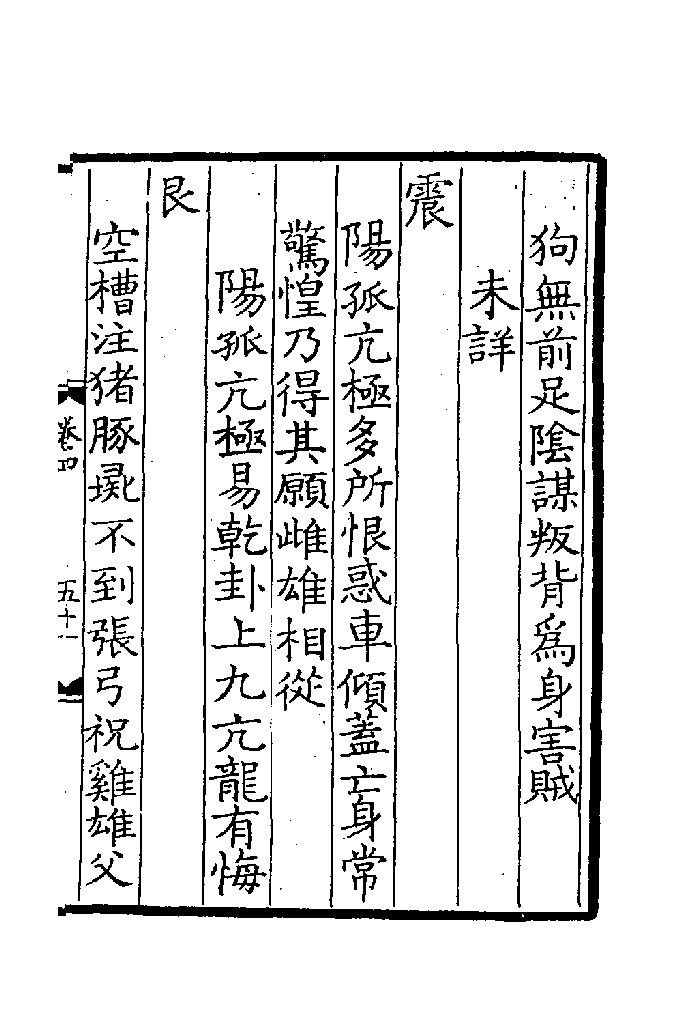 狗無前足陰謀叛背爲身害賊
未詳
震
陽孤亢極多所恨惑車傾蓋亡身常
驚惶乃得其願雌雄相從
陽孤亢極易乾卦上九亢龍有悔
艮
空槽注猪豚彘不到張弓祝雞雄父
卷四
五十一